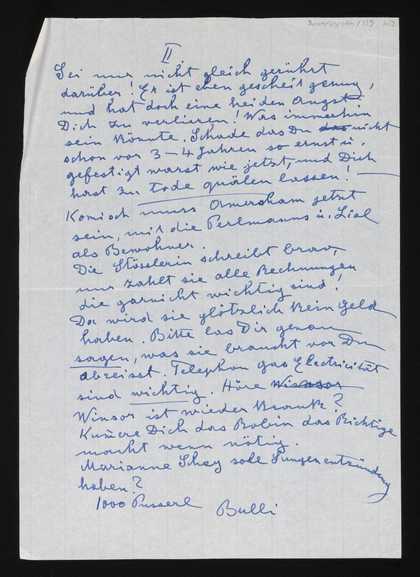 II
Sei nur nicht gleich gerührt
darüber! Er ist eben gescheit genug,
und hat doch eine heiden Angst
Dich zu verlieren! Was immerhin
sein könnte. Schade das Du das nicht
schon vor 3-4 Jahren so ernst u.
gefestigt warst wie jetzt, und Dich
hast zu Tode quälen lassen! —
Komisch muss Amersham jetzt
sein, mit die Perlmanns u. Liel
als Bewohner.
Die Stösslerin schreibt brav,
nur zahlt sie alle Rechnungen
die garnicht wichtig sind.
Da wird sie plötzlich kein Geld
haben. Bitte las Dir genau
sagen, was sie braucht vor Du
abreist. Telephon gas Electricität
sind wichtig. Höre Winsor
Winsor ist wieder Kranke?
Kümere Dich das Robin das Richtige
macht wenn nötig.
Marianne soll Lungenentzündung
haben?
1000 Pusserl Bulli